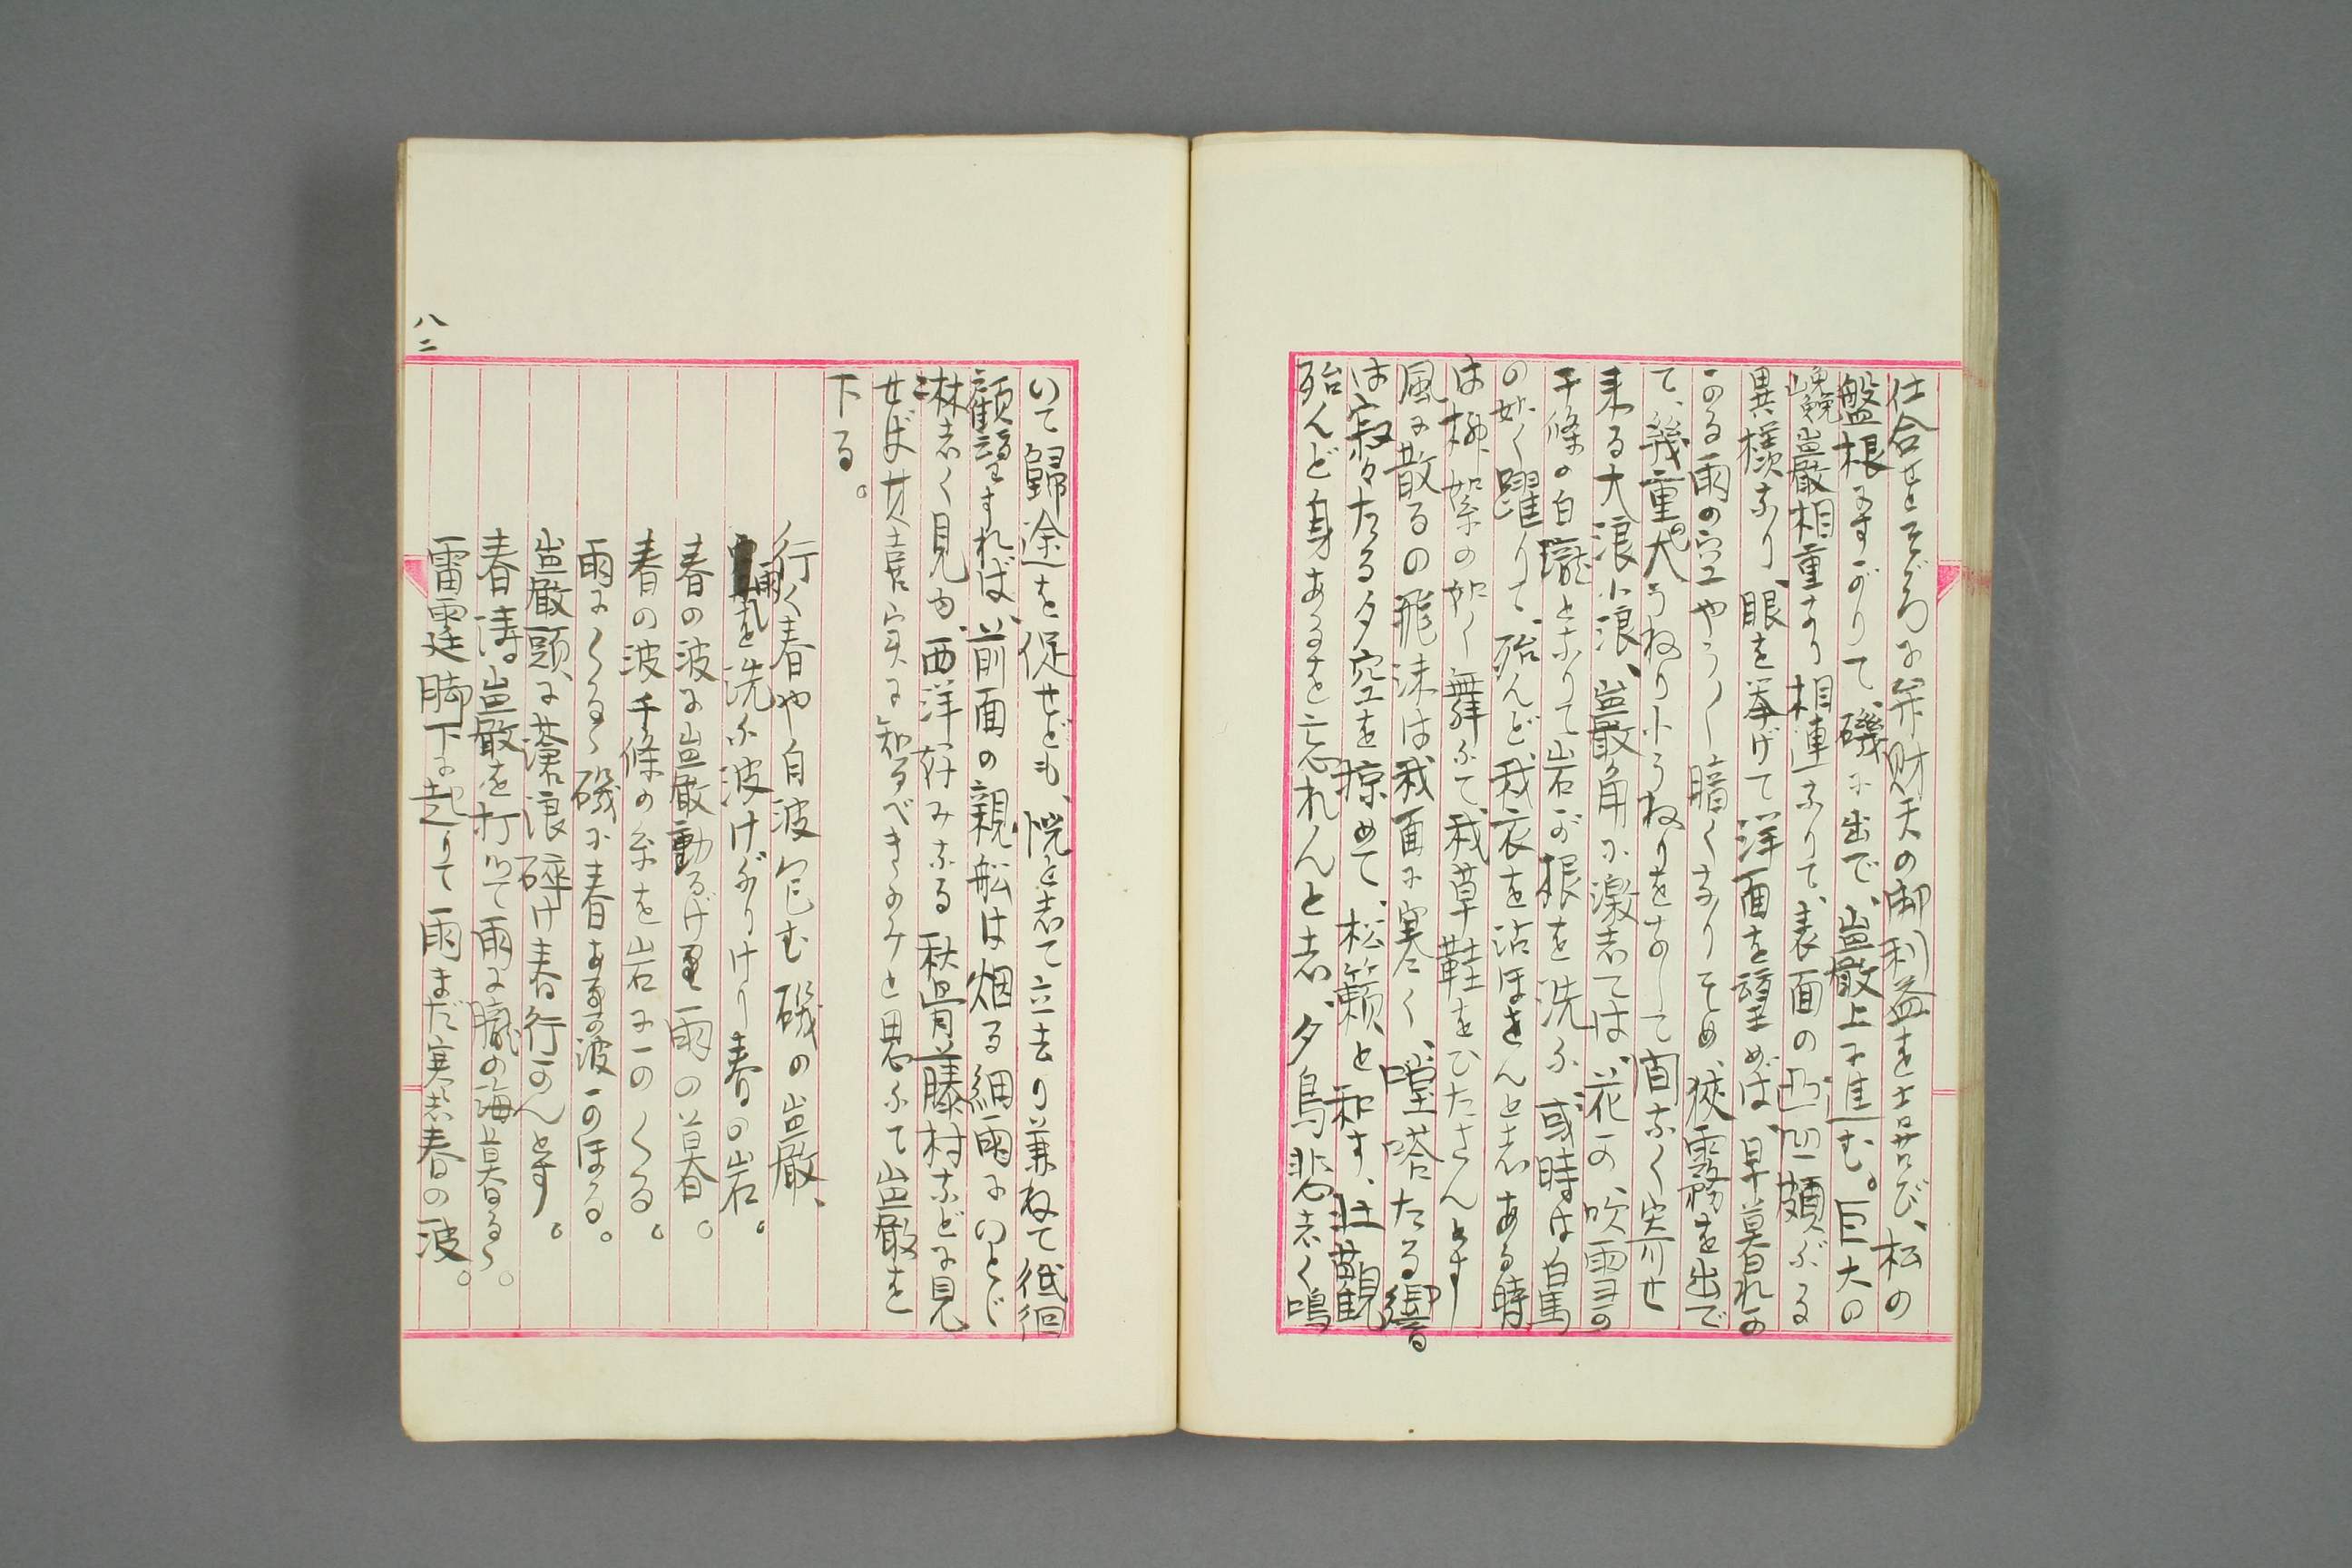 仕合せとそゞろに弁財天の御利益を喜び、松の
盤根にすがりて、磯に出で、巌上に進む。巨大の
巉巌相重なり相連なりて、表面の凸凹頗ぶる
異様なり、眼を挙げて洋面を望めば、早暮れか
かる雨の空やう〳〵暗くなりそめ、狭霧を出で
て、幾重。大うねり小うねりをなして間なく寄せ
来る大浪小浪、巌角に激志ては、花か吹雪か
千條の白瀧となりて岩が根を洗ふ、或時は白馬
の如く躍りて、殆んど我衣を沾ほさんと志、ある時
は柳絮の如く舞ふて、我草鞋をひたさんとす
風に散るの飛沫は我面に寒く、噹嗒たる響
は寂々たる夕空を掠めて、松籟と和す、壮観
殆んど身あるを忘れんと志、夕鳥悲志く鳴
いて歸途を促せども、恍と志て立去り兼ねて徘徊
顧望すれば、前面の親船は烟る細雨にいとど
淋志く見ゆ、西洋好みなる秋骨藤村などに見
せば其喜実に知るべきのみと思ふて巌を
下る。
行く春や白波包む磯の巌、
雨を洗ふ波けぶりけり春の岩。
春の波に巌動るげ里雨の暮。
春の波千條の糸を岩にのくる。
雨にくるゝ磯に春なる波のほる。
巌頭に蒼浪碎け春行かんとす。
春濤巌を打つて雨に朧の海暮るゝ。
雷霆脚下に起りて雨まだ寒志春の波。
八二